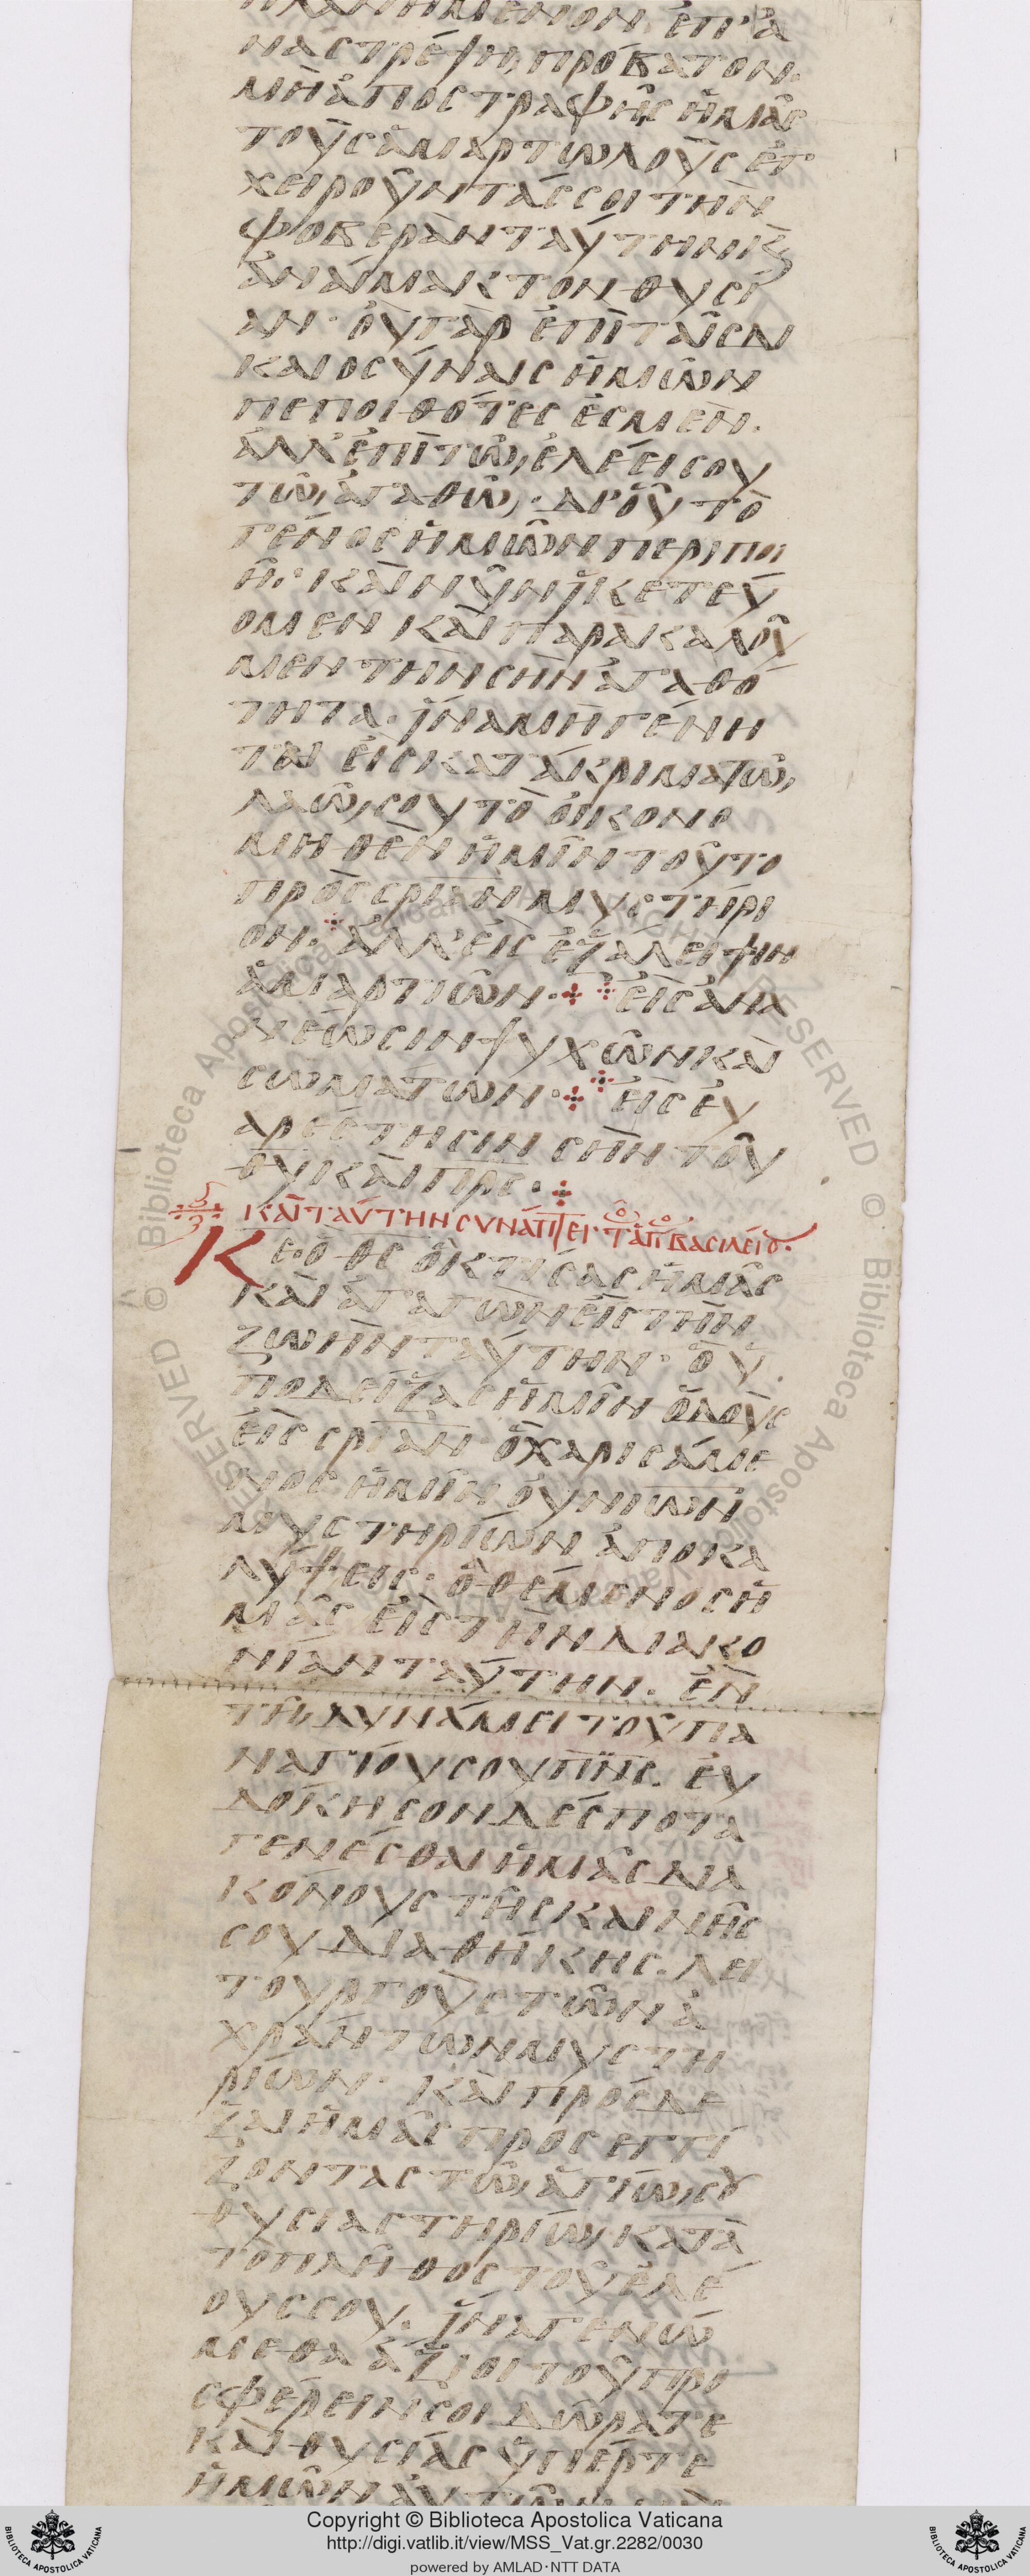 πλανημενον ἐπ' ἀ
ναστρέψῃ πρόβατον.
μὴ ἀποστραφῇς ἡμᾶς
τοὺς ἁμαρτωλοὺς ἐγ
χειροῦντάς σοι τὴν
φοβερὰν ταύτην κ̀
ἀναίμακτον θυσί
αν· οὐ γὰρ ἐπὶ ταῖς δι
καιοσύναις ἡμῶν
πεποιθότες ἐσμὲν.
ἀλλ' ἐπὶ τῶ, ἐλέει σου
τῶ, ἀγαθῶ,· δι' οὗ τὸ
γένος ἡμῶν περιποι
ῆ· καὶ νῦν ἱκετεύ
ομεν καὶ παρακαλοῦ
μεν τὴν σὴν ἀγαθό
τητα. ἵνα μὴ γένη
ται εἰς κατάκριμα τῶ,
λαῶ, σου τὸ οἰκονο
μηθὲν ἡμῖν τοῦτο
πρὸς σρίαν μυστήρι
ον. ἀλλ' εἰς ἐξάλειψιν
ἁμαρτιῶν· εἰς ἀνα
νέωσιν ψυχῶν καὶ
σωμάτων· εἰς εὐ
αρέστησιν σὴν τοῦ
θυ καὶ πρς·
καὶ ταύτην συνάπτει· τοῦ ἁγίου βασιλείου·
Κε ὁ θς ὁ κτίσας ἡμᾶς
καὶ ἀγαγὼν εἰς τὴν
ζωὴν ταύτην· ὁ ὑ
ποδείξας ἡμῖν ὁδοὺς
εἰς σρίαν ὁ χαρισάμε
νος ἡμῖν ουνιων
μυστηρίων ἀποκα
λύψεις· ὁ θέμενος ἡ
μᾶς εἰς τὴν διακο
νίαν ταύτην. ἐν
τῆ, δυνάμει τοῦ πα
ναγίου σου πνς. εὐ
δόκησον δέσποτα
γενέσθαι ἡμᾶς δια
κόνους τῆς καινῆς
σου διαθήκης. λει
τουργοὺς τῶν ἀ
χράντων μυστη
ρίων· καὶ πρόσδε
ξαι ἡμᾶς προσεγγί
ζοντας τῶ, ἁγίω, σου
θυσιαστηρίω, κατὰ
τὸ πλῆθος τοῦ ἐλέ
ους σου. ἵνα γενώ
μεθα ἄξιοι τοῦ προ
σφέρειν σοι δῶρά τε
καὶ θυσίας ὑπέρ τε
ἡμῶν αὐτῶν καὶ
Copyright © Biblioteca Apostolica Vaticana
http://digi.vatlib.it/view/MSS_Vat.gr.2282/0030
powered by AMLAD·NTT DATA